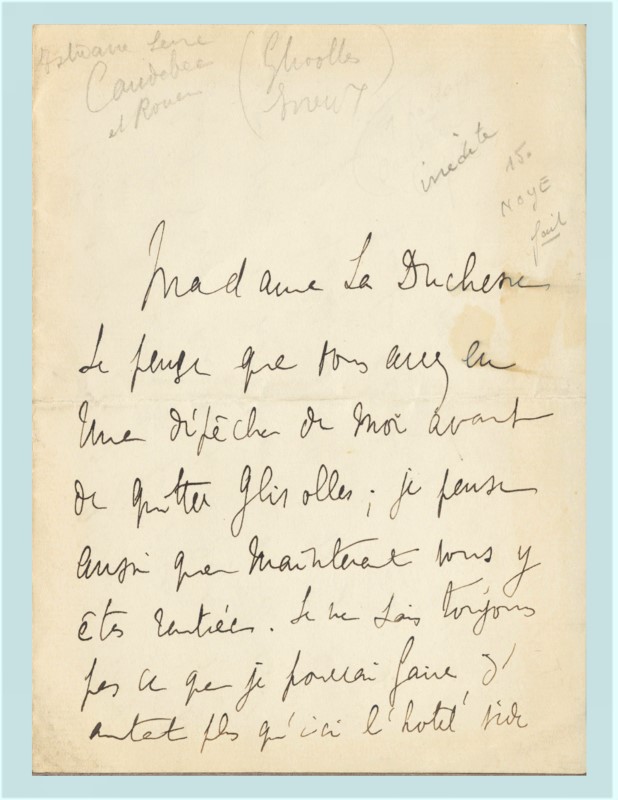 Caudebec
et Rouen
inédite
15.
NOYE
fait
Madame La Duchesse
Je pense que vous avez eu
Une dépêche de moi avant
de quitter Glisolles ; je pense
aussi que maintenant vous y
êtes rentrée. Je ne sais toujours
pas ce que je pourrai faire, d'
autant plus qu'ici l'hotel